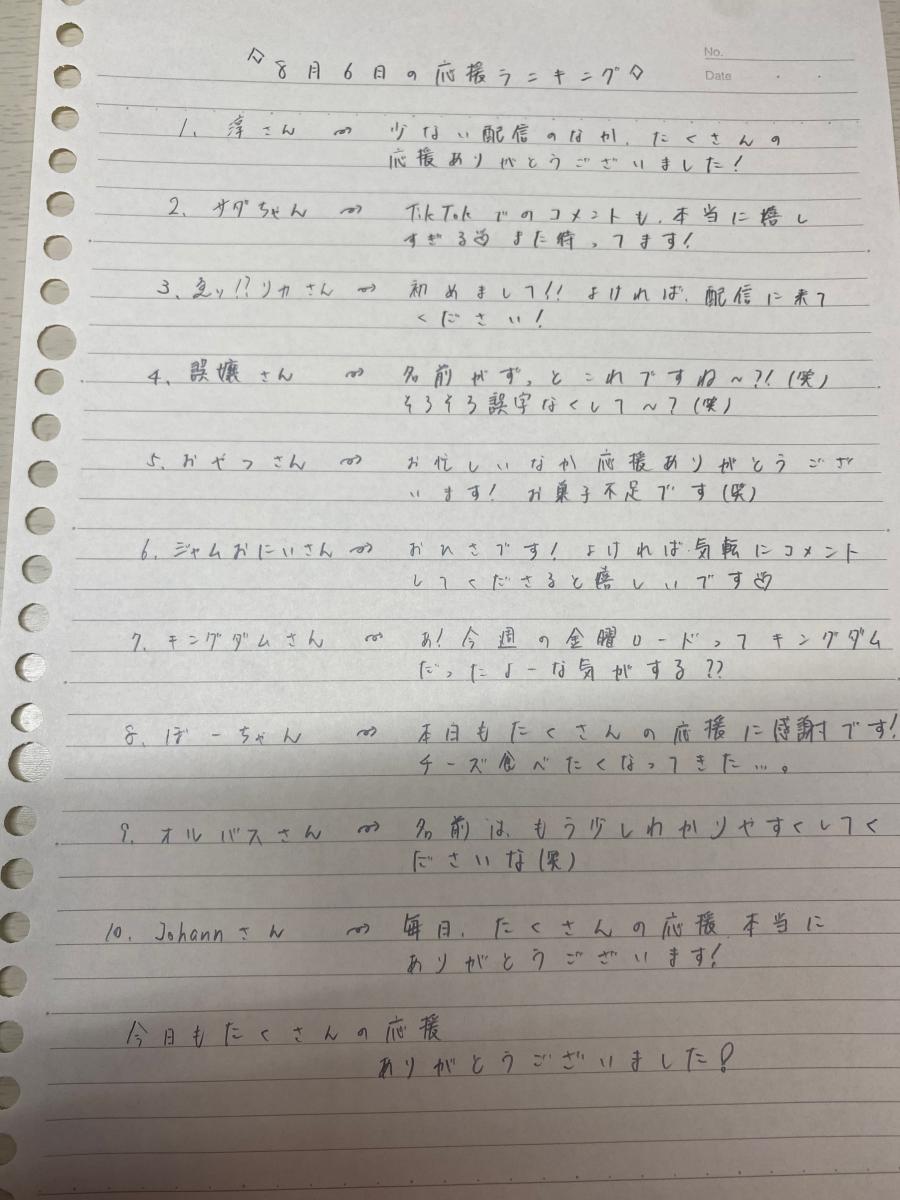 ☆8月6日の応援ランキング☆
No.
Date
1. 淳さん ⇝ 少ない配信のなか、たくさんの
応援ありがとうございました!
2. サダちゃん ⇝ TikTokでのコメントも、本当に嬉し
すぎる♡ また待ってます!
3. 急ッ!?リカさん ⇝ 初めまして!! よければ、配信に来て
ください!
4. 誤嬢さん ⇝ 名前がずっとこれですね〜?!(笑)
そろそろ誤字なくして〜?(笑)
5. おやつさん ⇝ お忙しいなか応援ありがとうござ
います! お菓子不足です(笑)
6. ジャムおにいさん ⇝ おひさです! よければ気軽にコメント
してくださると嬉しいです♡
7. キングダムさん ⇝ あ!今週の金曜ロードってキングダム
だったよーな気がする??
8. ぼーちゃん ⇝ 本日もたくさんの応援に感謝です!
チーズ食べたくなってきた…。
9. オルバスさん ⇝ 名前は、もう少しわかりやすくしてく
ださいな(笑)
10. Johannさん ⇝ 毎日、たくさんの応援 本当に
ありがとうございます!
今日もたくさんの応援
ありがとうございました!